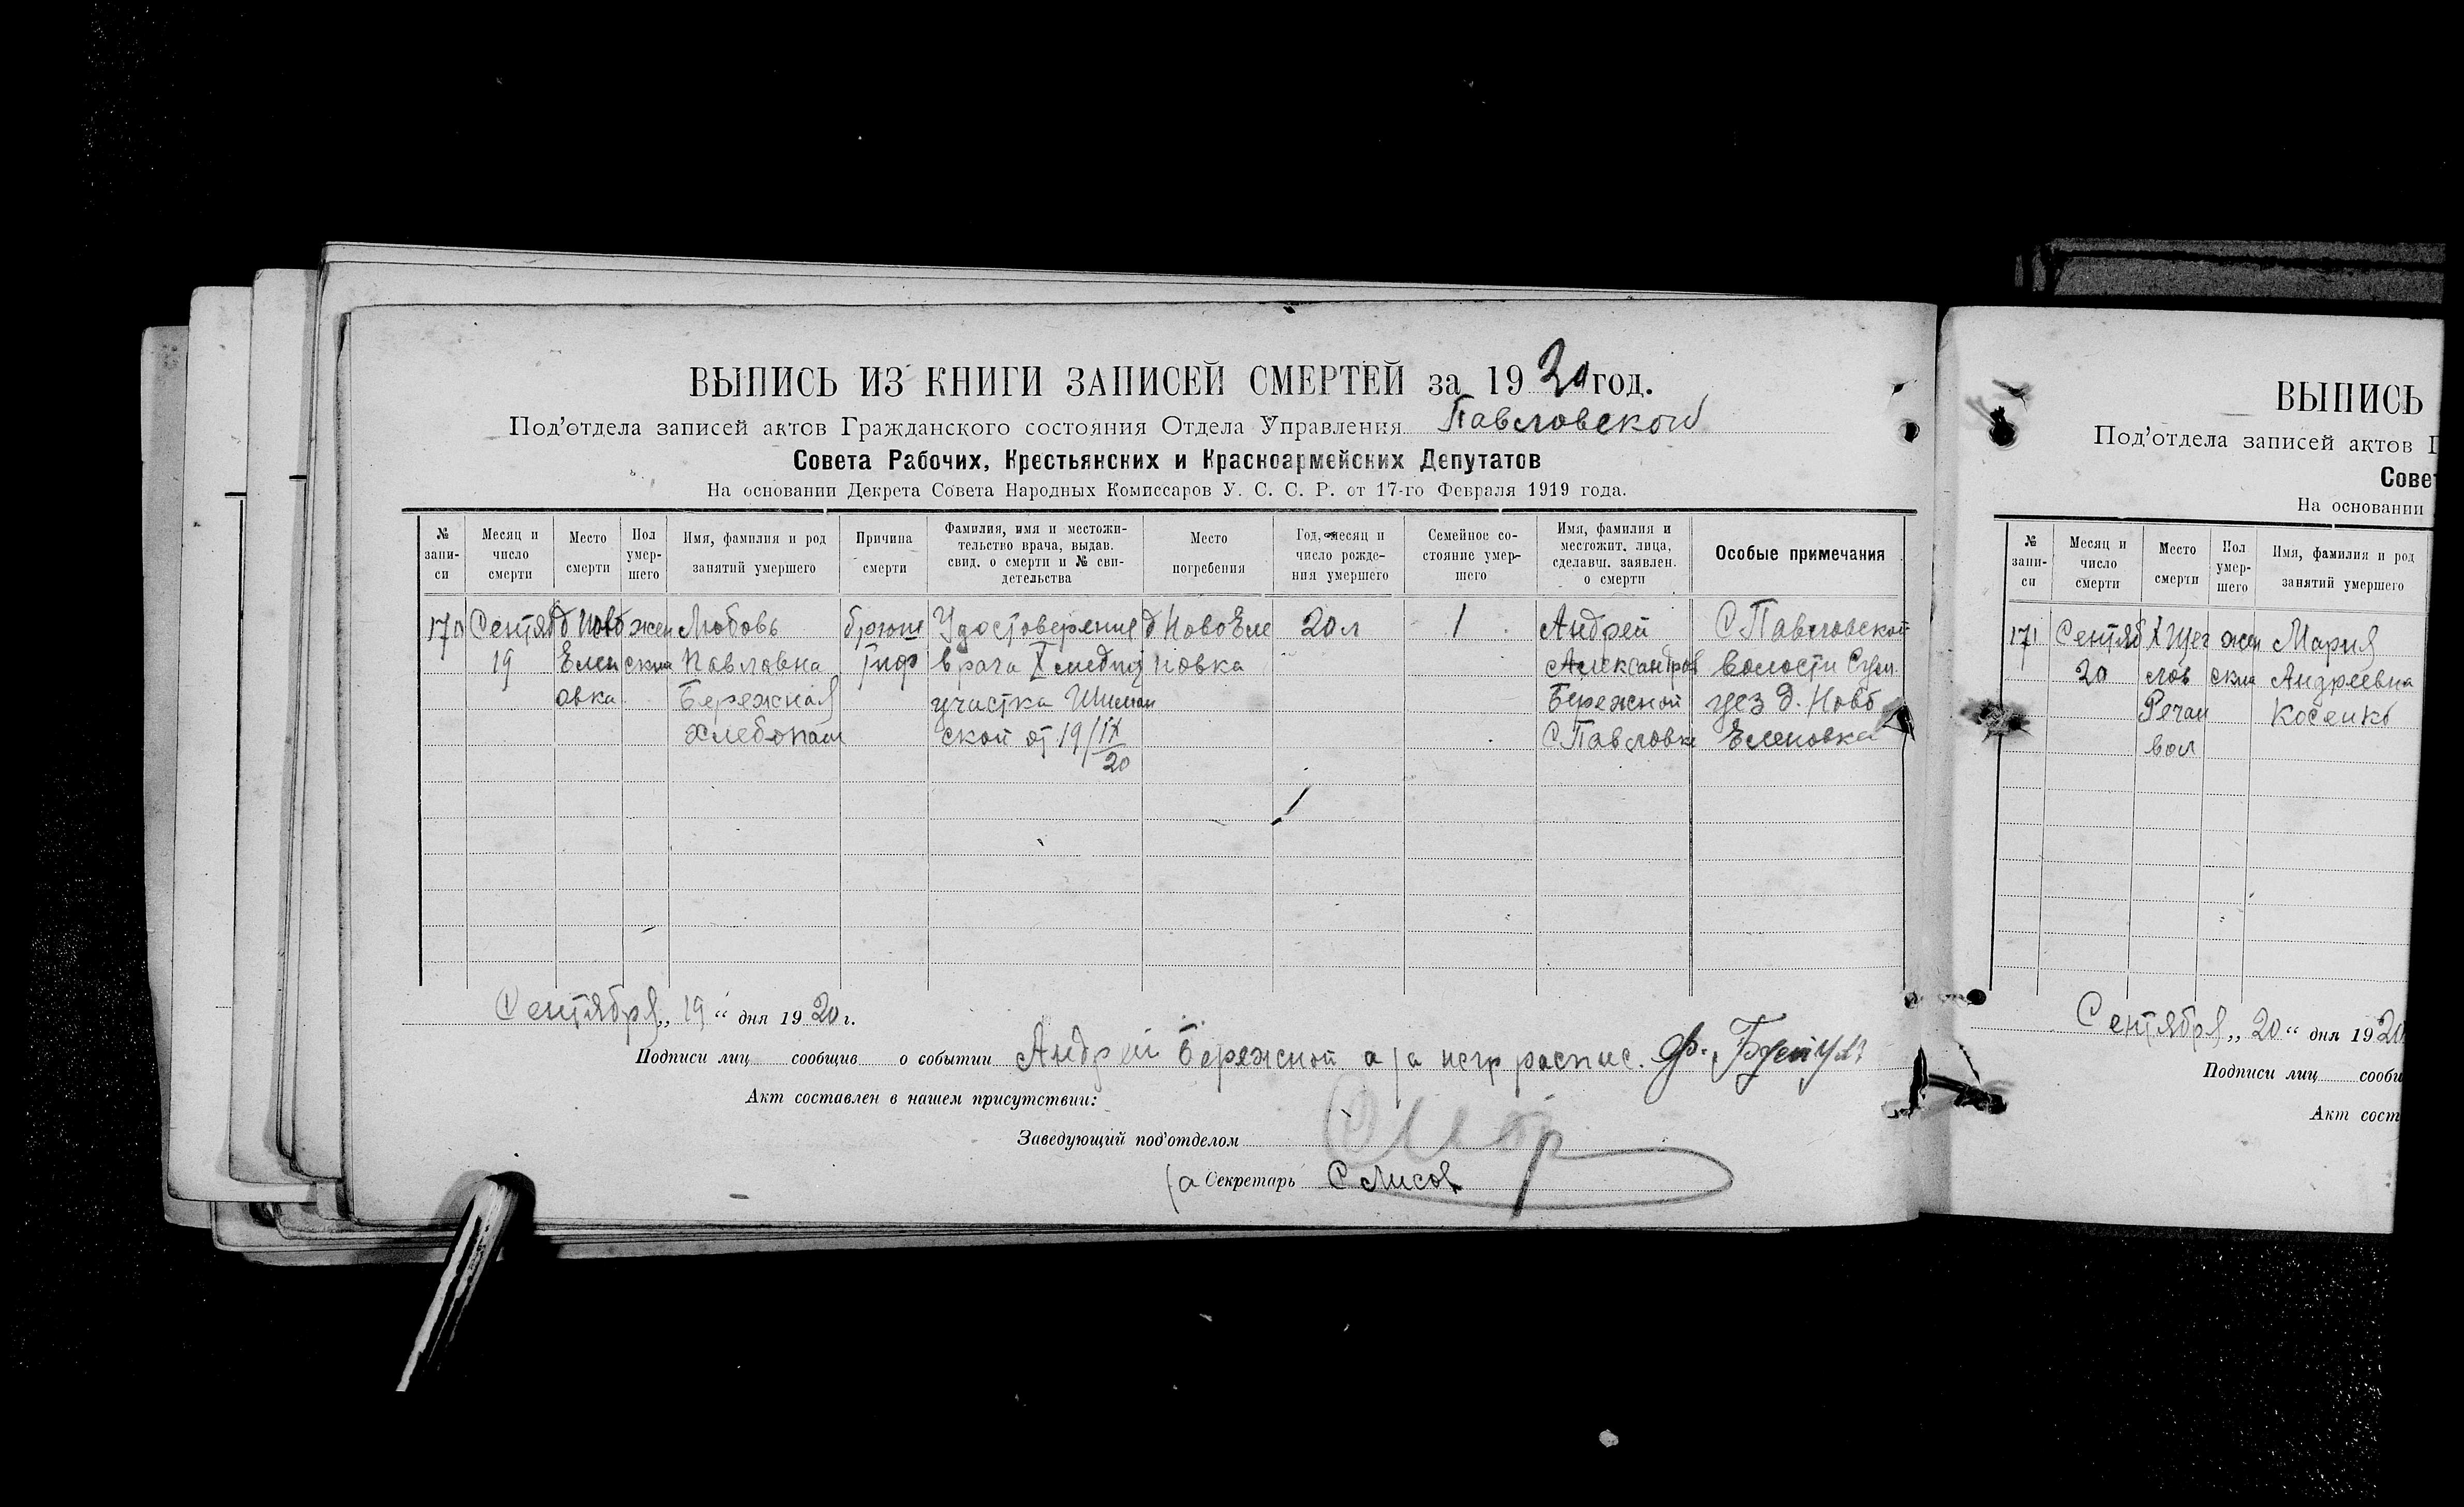 ВЫПИСЬ ИЗ КНИГИ ЗАПИСЕЙ СМЕРТЕЙ за 1920 год.
Под'отдела записей актов Гражданского состояния Отдела Управления Павловской
Совета Рабочих, Крестьянских и Красноармейских Депутатов
На основании Декрета Совета Народных Комиссаров У. С. С. Р. от 17-го Февраля 1919 года.
№ запи-си
Месяц и число смерти
Место смерти
Пол умер-шего
Имя, фамилия и род занятий умершего
Причина смерти
Фамилия, имя и местожи-тельство врача, выдав. свид. о смерти и № сви-детельства
Место погребения
Год, месяц и число рожде-ния умершего
Семейное со-стояние умер-шего
Имя, фамилия и местожит. лица, сделавш. заявлен. о смерти
Особые примечания
170 Сентяб д Ново жен Любовь брюш Удостоверение д Ново Еле 20 л 1 Андрей С Павловской
19 Елен ская Павловна тиф врача X медиц новка Александров волости Сум.
овка Бережная участка Шиман Бережной уез д. Ново
Хлебопаш ской от 19/IX С Павловки Еленовка
20
Сентября „ 19 “ дня 1920 г.
Подписи лиц сообщив о событии Андрей Бережной а за негр распис.
Акт составлен в нашем присутствии:
Заведующий под'отделом
за Секретарь С Лисов
ВЫПИСЬ
Под'отдела записей актов Г
Совет
На основании
№ запи-си
Месяц и число смерти
Место смерти
Пол умер-шего
Имя, фамилия и род занятий умершего
171 Сентяб Х Щег жен Мария
20 лов ская Андреевна
Речан Косенко
вол
Сентября „ 20 “ дня 1920
Подписи лиц сооби
Акт сост